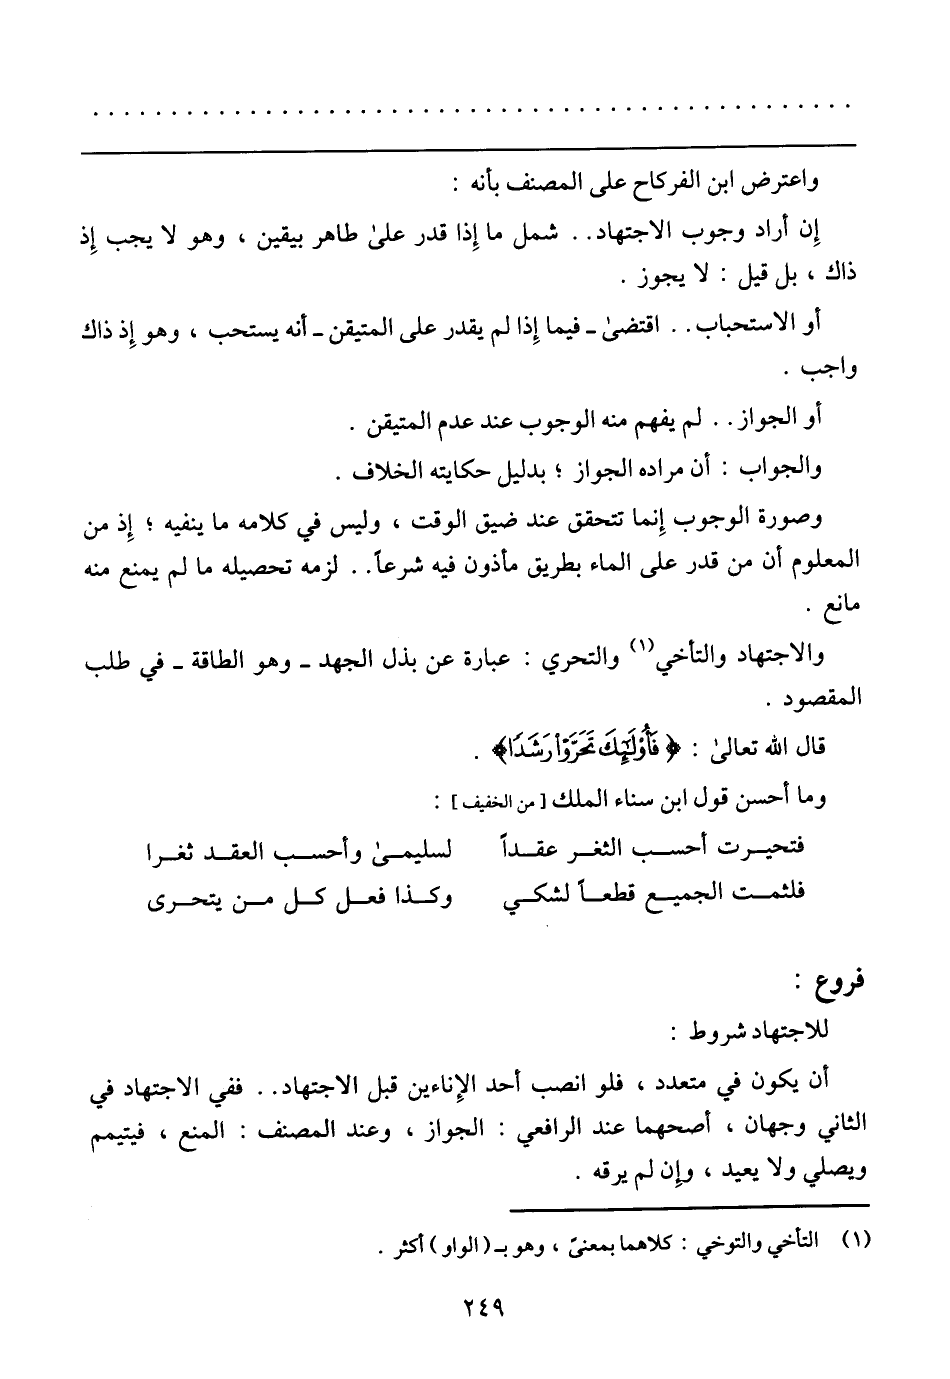 واعترض ابن الفركاح على المصنف بأنه :
إن أراد وجوب الاجتهاد . . شمل ما إذا قدر علىٰ طاهر بيقين ، وهو لا يجب إذ
ذاك ، بل قيل : لا يجوز .
أو الاستحباب . . اقتضىٰ ـ فيما إذا لم يقدر على المتيقن ـ أنه يستحب ، وهو إذ ذاك
واجب .
أو الجواز . . لم يفهم منه الوجوب عند عدم المتيقن .
والجواب : أن مراده الجواز ؛ بدليل حكايته الخلاف .
وصورة الوجوب إنما تتحقق عند ضيق الوقت ، وليس في كلامه ما ينفيه ؛ إذ من
المعلوم أن من قدر على الماء بطريق مأذون فيه شرعاً . . لزمه تحصيله ما لم يمنع منه
مانع .
والاجتهاد والتأخي(١) والتحري : عبارة عن بذل الجهد ـ وهو الطاقة ـ في طلب
المقصود .
قال الله تعالىٰ : ﴿ فَأُوْلَٰٓئِكَ تَحَرَّوۡاْ رَشَدٗا﴾ .
وما أحسن قول ابن سناء الملك [من الخفيف] :
فتحيرت أحسب الثغر عقداً لسليمىٰ وأحسب العقد ثغرا
فلثمت الجميع قطعاً لشكي وكذا فعل كل من يتحرى
فروع :
للاجتهاد شروط :
أن يكون في متعدد ، فلو انصب أحد الإناءين قبل الاجتهاد . . ففي الاجتهاد في
الثاني وجهان ، أصحهما عند الرافعي : الجواز ، وعند المصنف : المنع ، فيتيمم
ويصلي ولا يعيد ، وإن لم يرقه .
(١) التأخي والتوخي : كلاهما بمعنىً ، وهو بـ ( الواو ) أكثر .
٢٤٩